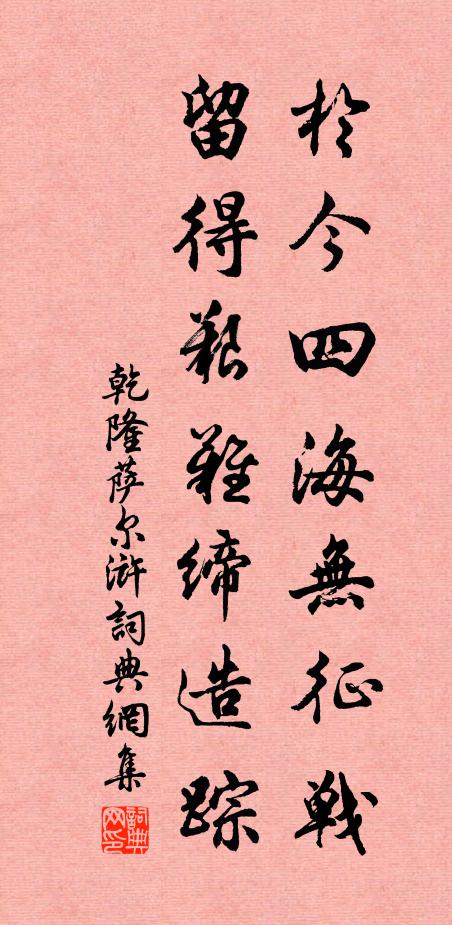 於今四海無征戰
留得艱難締造踪
乾隆萨尔浒詞典網集
詞典网印